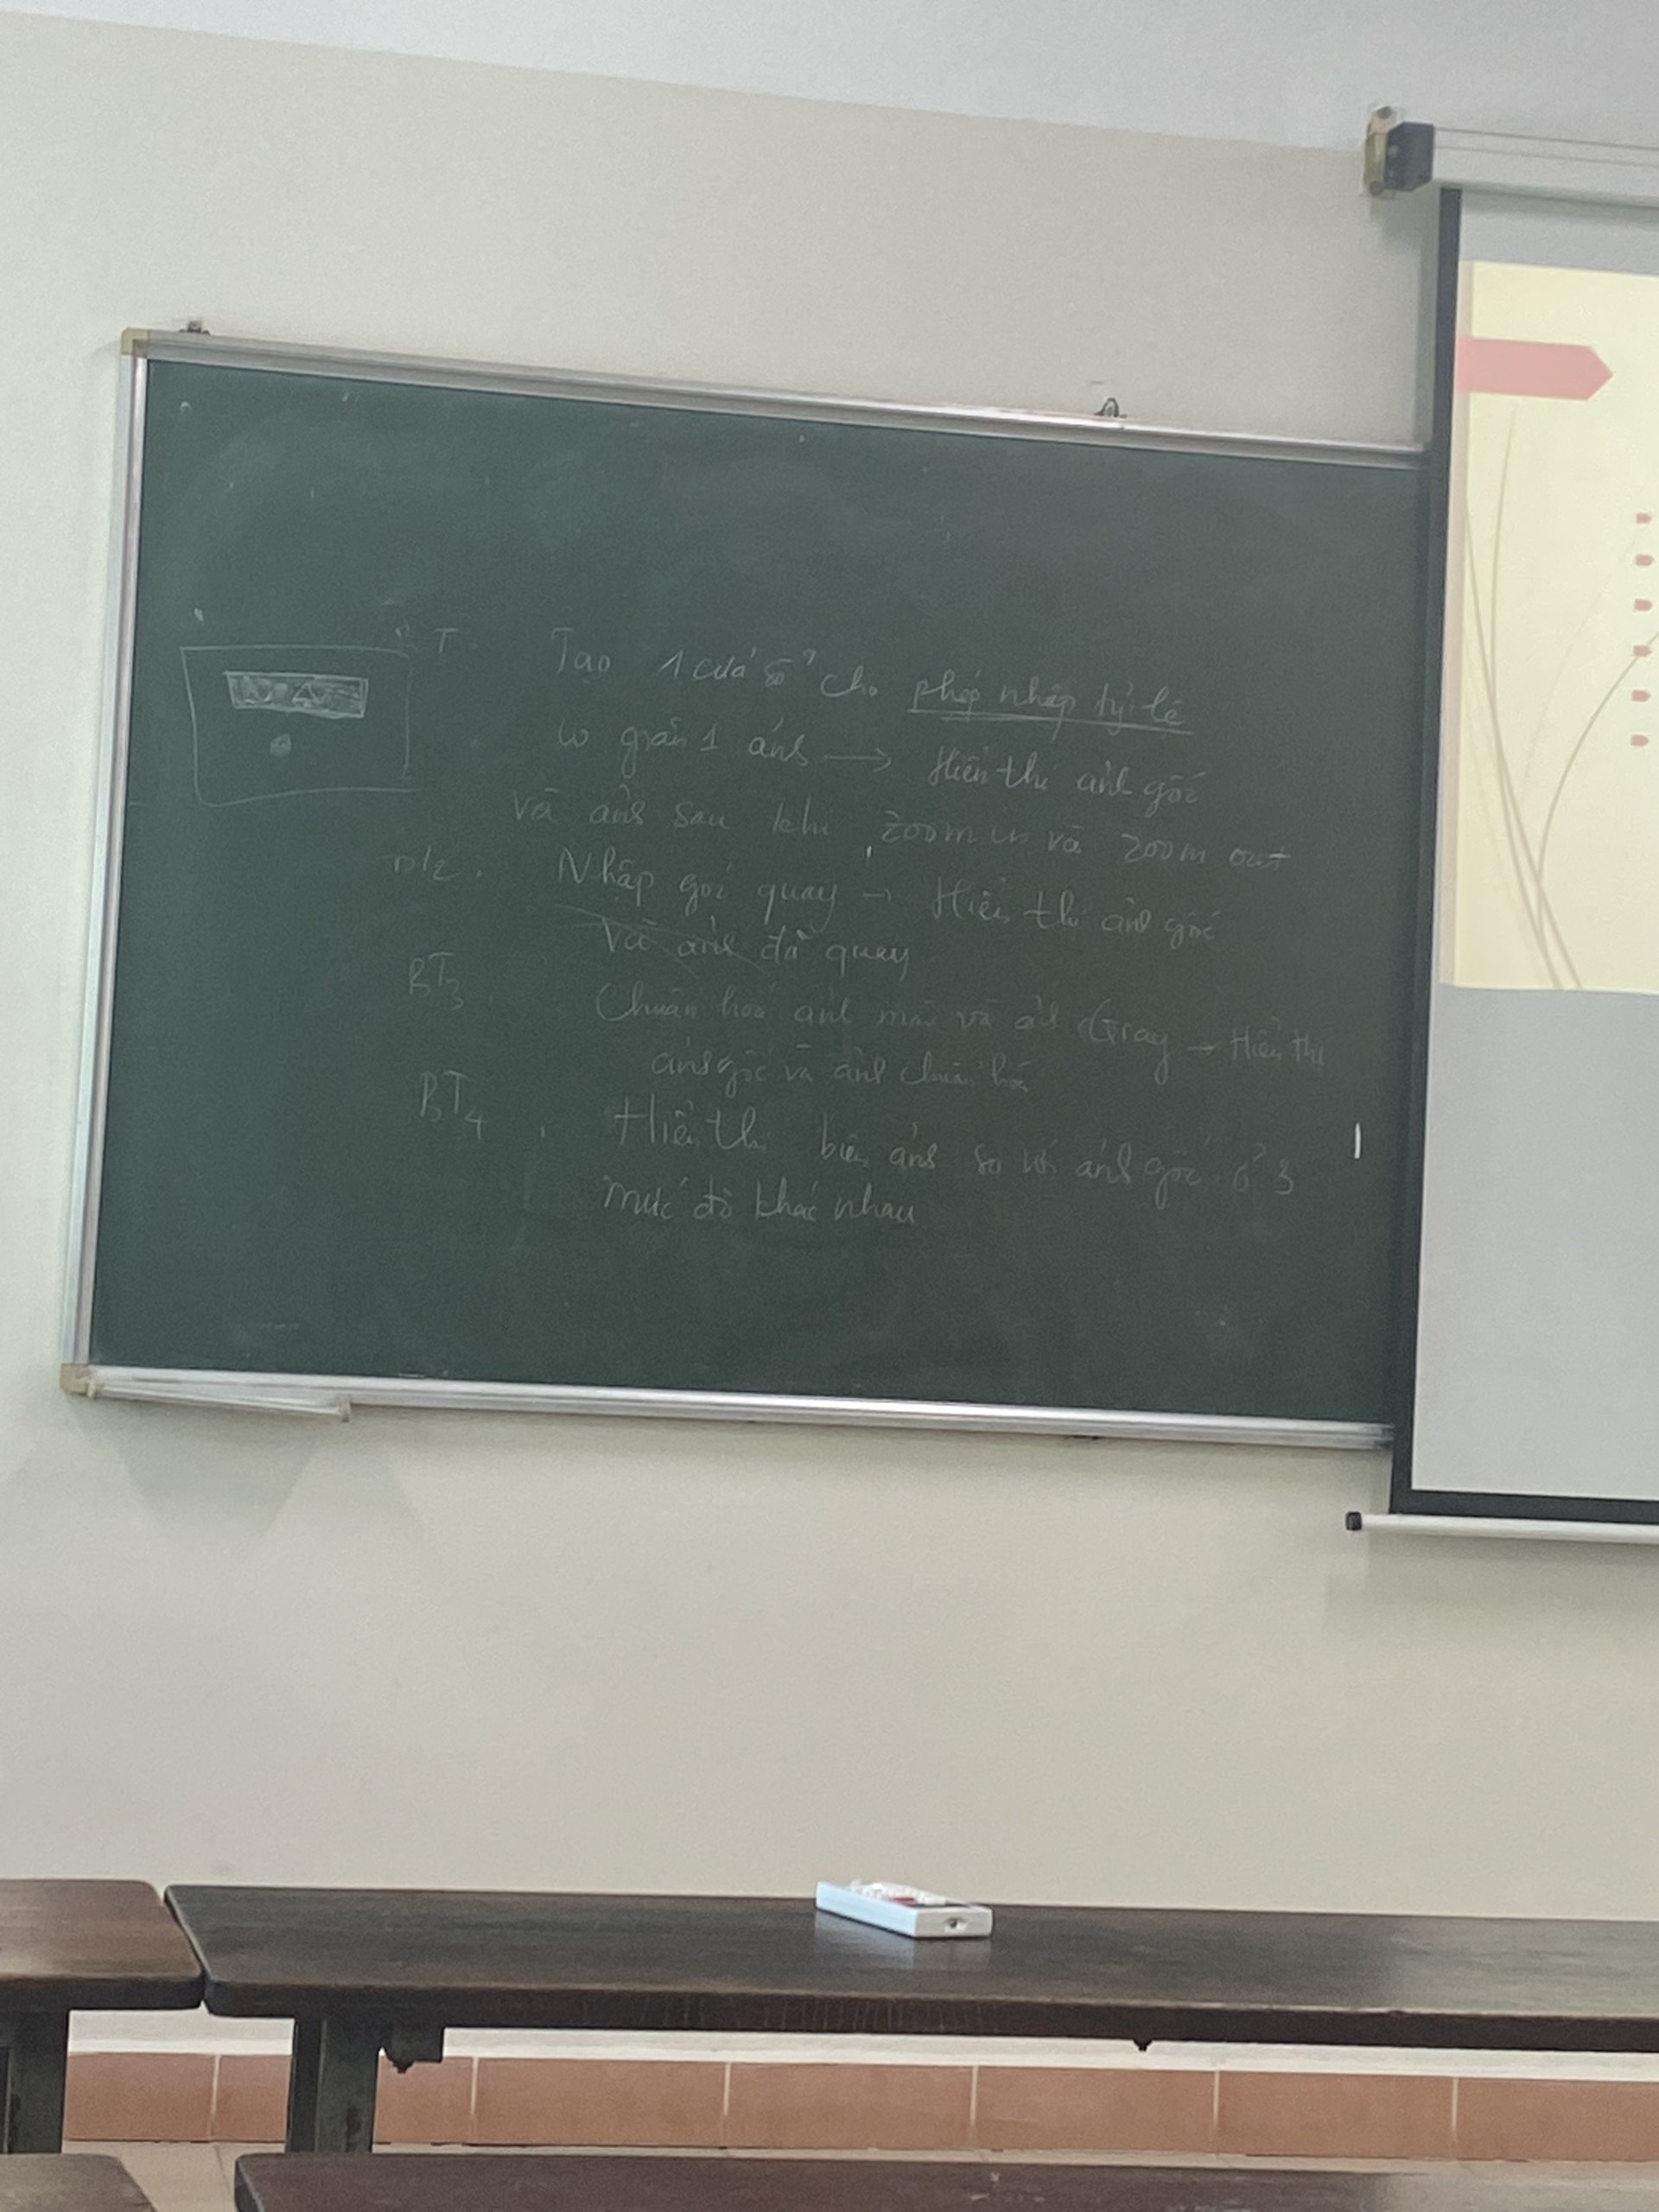 T. Tạo 1 cửa sổ cho phép nhập tỷ lệ
co giãn 1 ảnh → Hiển thị ảnh gốc
và ảnh sau khi zoom in và zoom out
Nhập góc quay → Hiển thị ảnh gốc
và ảnh đã quay.
BT3 Chuẩn hoá ảnh màu và ảnh Gray → Hiển thị
ảnh gốc và ảnh chuẩn hoá
BT4. Hiển thị biên ảnh so với ảnh gốc ở 3
mức độ khác nhau